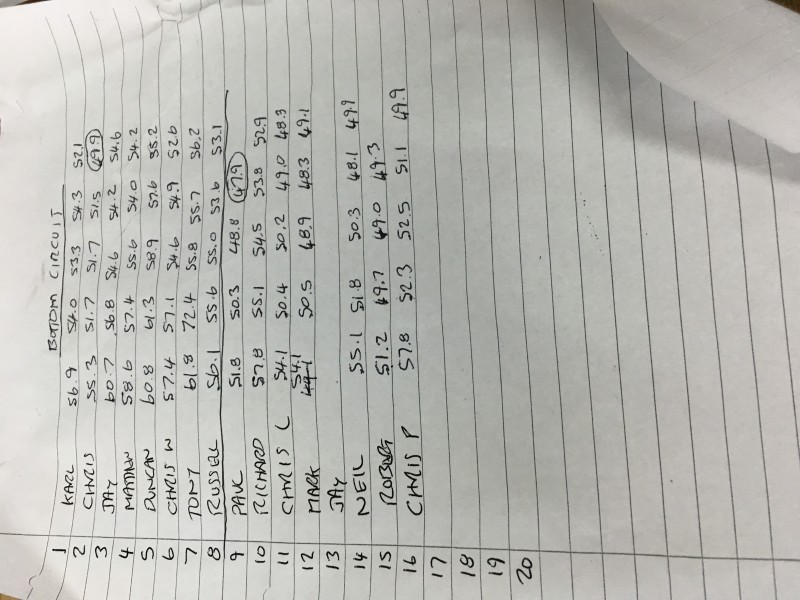 BOTTOM CIRCUIT
1 KARL 56.9 54.0 53.3 54.3 52.1
2 CHRIS 55.3 51.7 51.7 51.5 49.9
3 JAY 60.7 56.8 54.6 54.2 54.6
4 58.6 57.4 55.6 54.0 54.2
5 DUNCAN 60.8 61.3 58.9 57.6 55.2
6 CHRIS W 57.4 57.1 54.6 54.9 52.6
7 TONY 61.8 72.4 55.8 55.7 56.2
8 RUSSELL 56.1 55.6 55.0 53.6 53.1
9 PAUL 51.8 50.3 48.8 47.9
10 RICHARD 57.8 55.1 54.5 53.8 52.9
11 CHRIS L 54.1 50.4 50.2 49.0 48.3
12 MARK 54.1 50.5 48.9 48.3 49.1
13 JAY
14 NEIL 55.1 51.8 50.3 48.1 49.9
15 ROBERT 51.2 49.7 49.0 49.3
16 CHRIS P 57.8 52.3 52.5 51.1 49.9
17
18
19
20